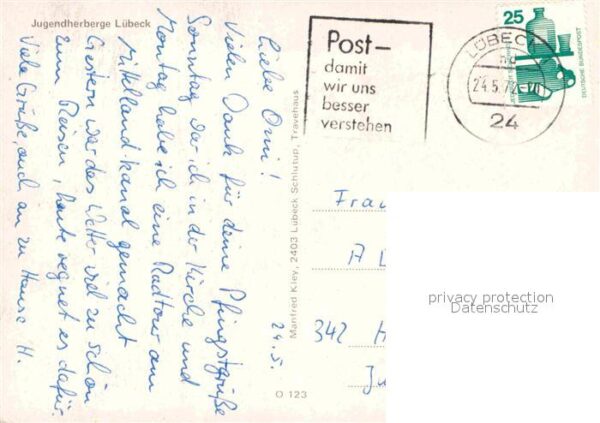 Jugendherberge Lübeck
24.5.
Liebe Omi!
Vielen Dank für deine Pfingstgrüße
Sonntag war ich in der Kirche und
Montag habe ich eine Radtour am
Mittellandkanal gemacht
Gestern war das Wetter viel zu schön
zum Reisen, heute regnet es dafür.
Viele Grüße, auch an zu Hause H.
Manfred Kiey, 2403 Lübeck Schlutup, Travehaus
O 123
Post–
damit
wir uns
besser
verstehen
LÜBECK
24.5.72
24
25
DEUTSCHE BUNDESPOST
Frau
342 H
privacy protection
Datenschutz